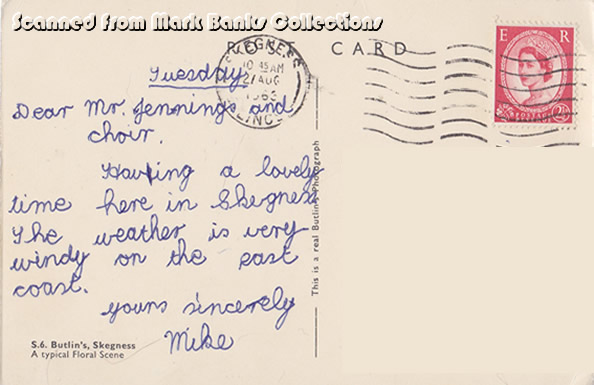 Scanned from Mark Banks Collections
POST CARD
SKEGNESS
10 45 AM
27 AUG
1963
LINCS
E R
Tuesday
Dear Mr. Jennings and
choir.
Having a lovely
time here in Skegness
The weather is very
windy on the east
coast.
yours sincerely
Mike
This is a real Butlin's Photograph
S.6. Butlin's, Skegness
A typical Floral Scene